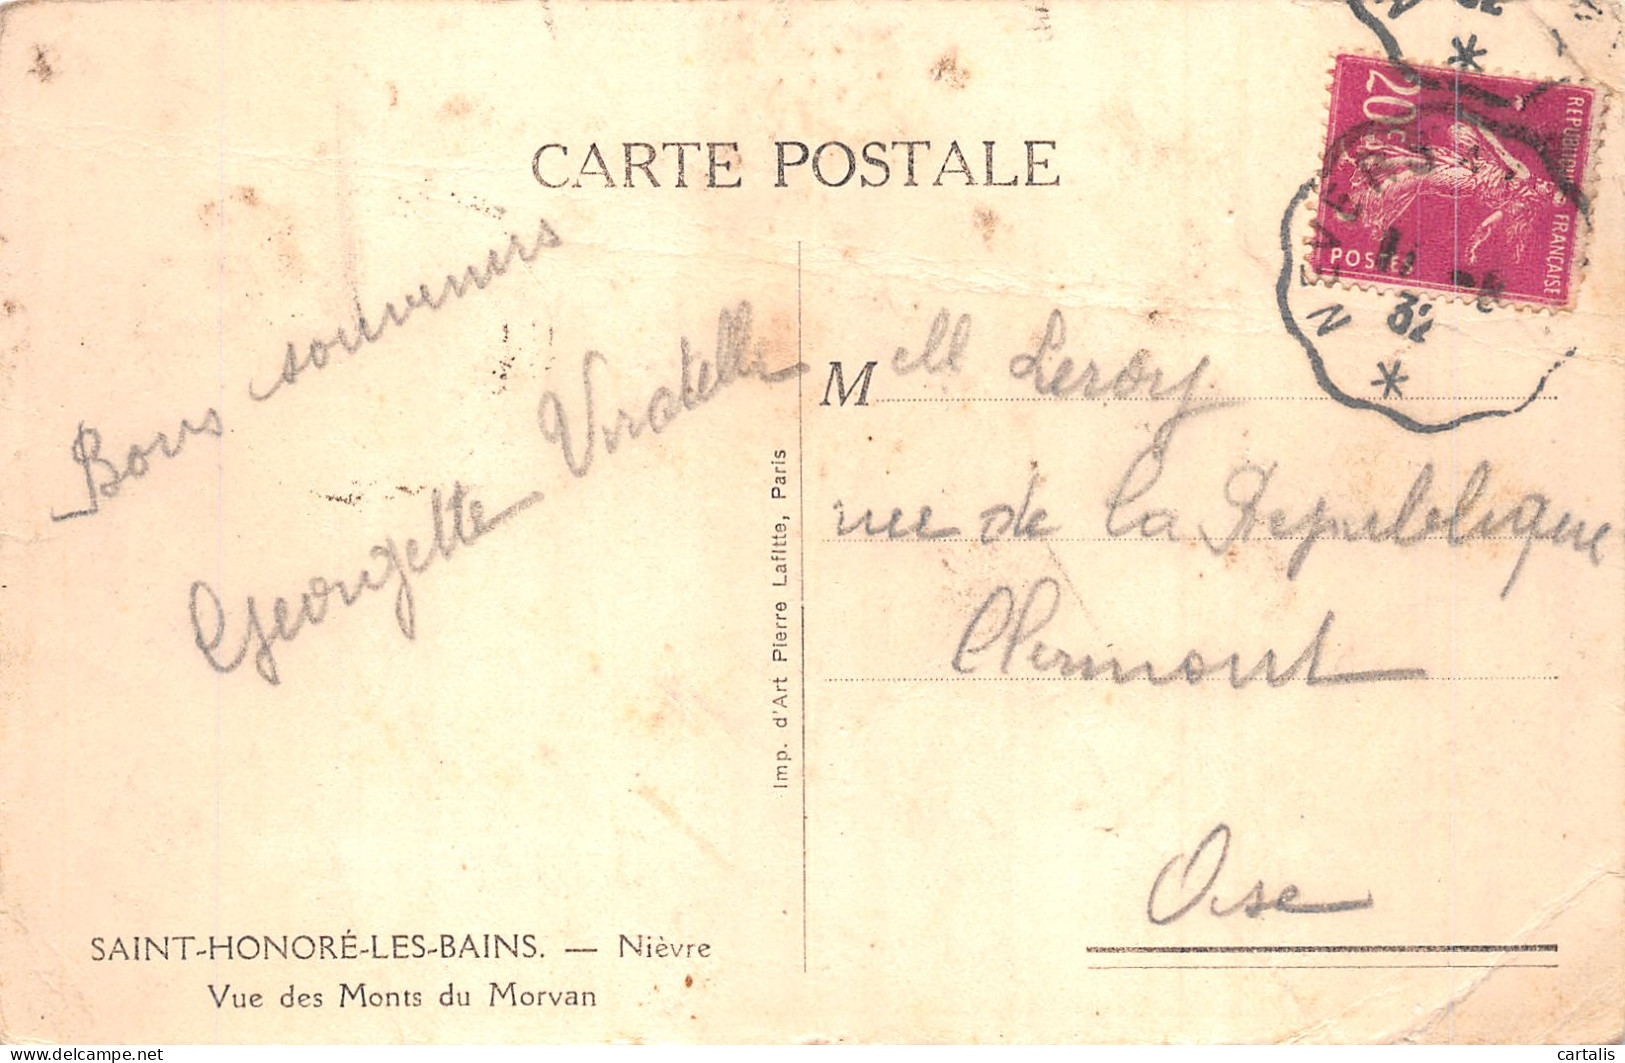 CARTE POSTALE
20c
REPUBLIQUE FRANÇAISE
POSTES
NEVERS
32
Bons souvenirs
Georgette Viratelle
Mell Leroy
rue de la République
Clermont
Oise
Imp. d'Art Pierre Lafitte, Paris
SAINT-HONORÉ-LES-BAINS. — Nièvre
Vue des Monts du Morvan
www.delcampe.net
cartalis